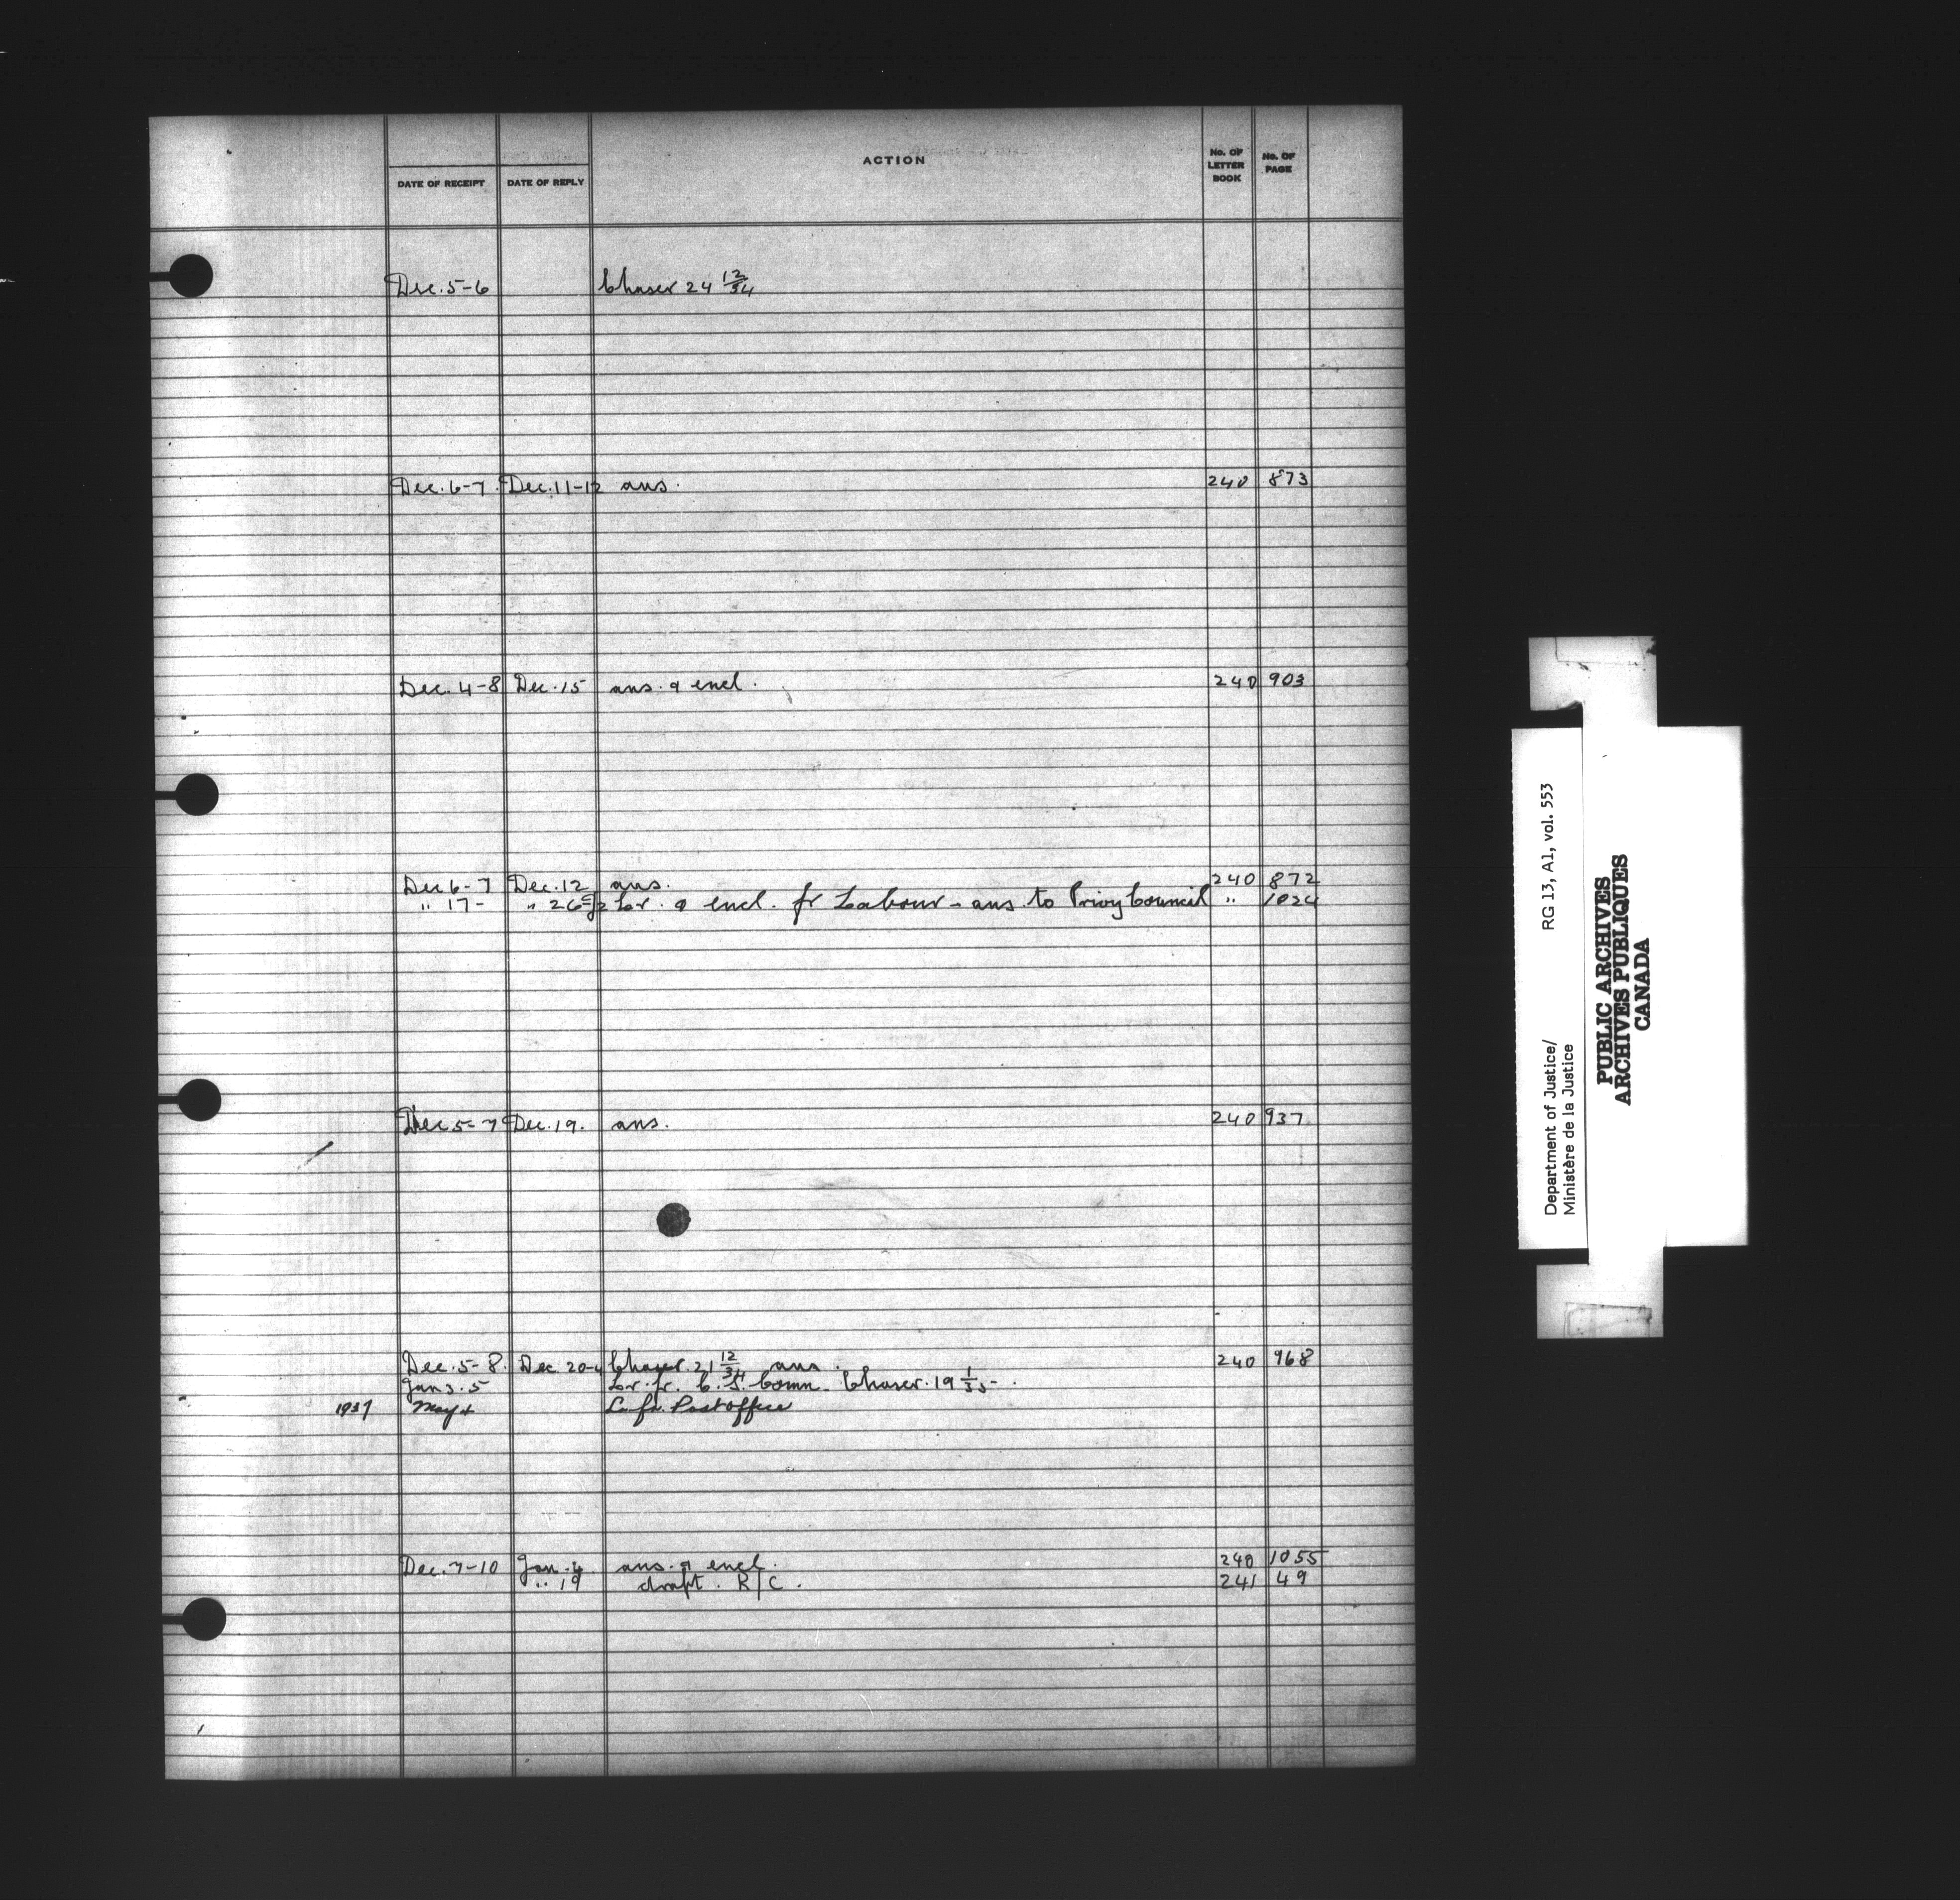 DATE OF RECEIPT DATE OF REPLY ACTION No. OF LETTER BOOK No. OF PAGE
Dec. 5-6 Chaser 24 12/34
Dec. 6-7 Dec. 11-12 ans. 240 873
Dec. 4-8 Dec. 15 ans. & encl. 240 903
Dec 6-7 Dec. 12 ans. 240 872
" 17- " 26- Lr. & encl. fr Labour - ans to Privy Council " 1024
Dec 5-7 Dec. 19. ans. 240 937
Dec. 5-8. Dec 20- Chaser. 21 12/34 ans. 240 968
Jan 3. 5 Lr. fr. C. S. Comn. Chaser. 19 1/35-.
1937 May 4 L. fr. Post office
Dec. 7-10 Jan. 4 ans. & encl. 240 1055
" 19 draft. R/C. 241 49
Department of Justice/
Ministère de la Justice
RG 13, A1, vol. 553
PUBLIC ARCHIVES
ARCHIVES PUBLIQUES
CANADA